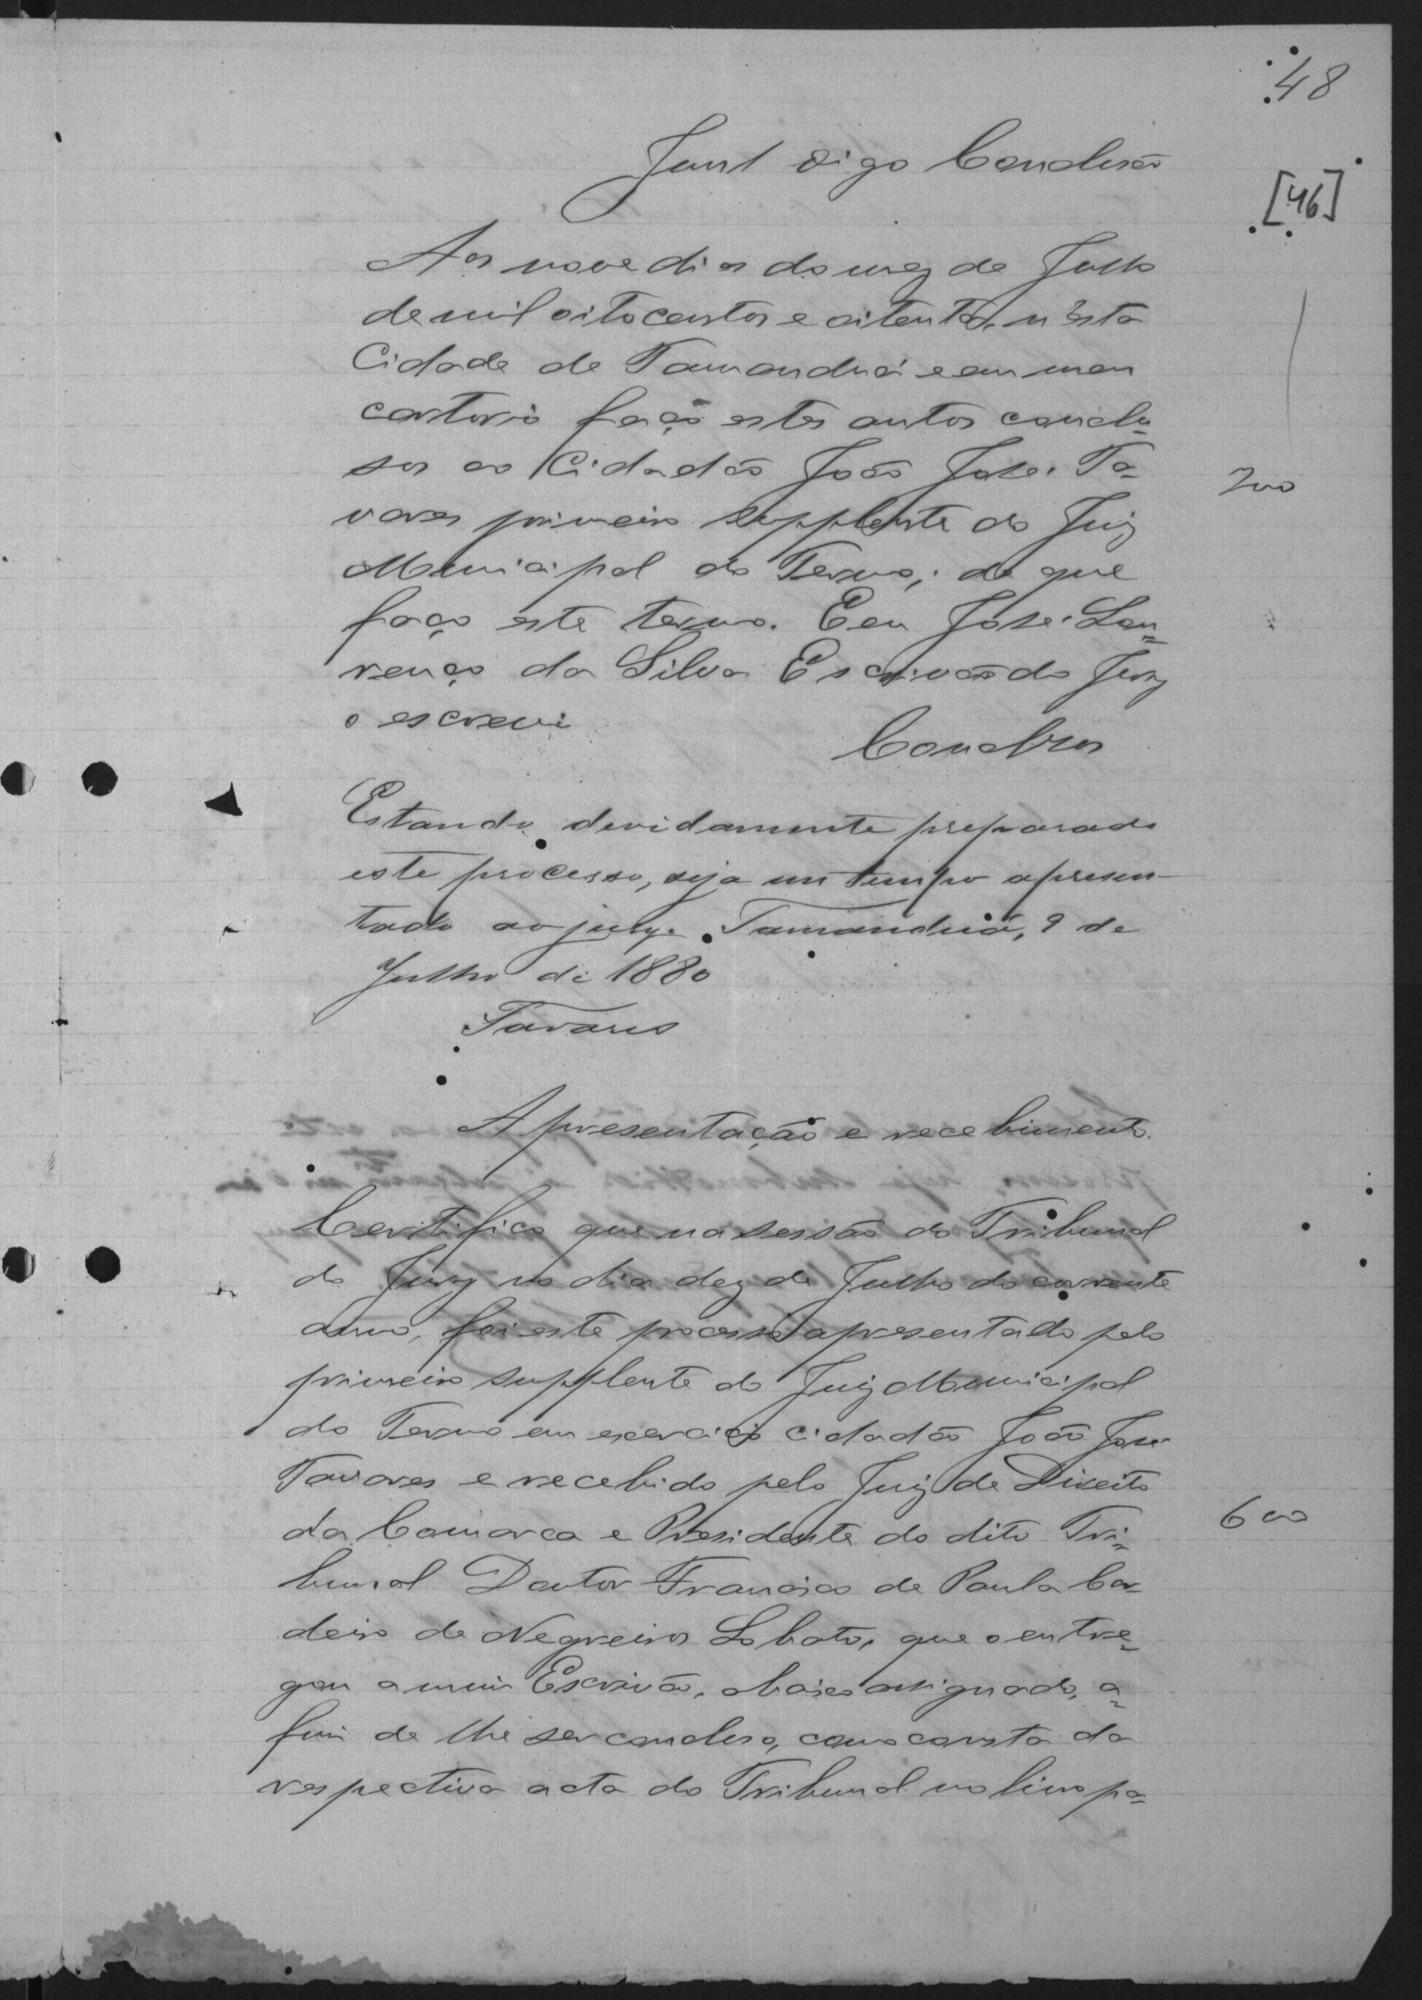 48
[46]
Junt digo Conclusão
Aos nove dias do mez de Julho
de mil oitocentos e oitenta, n'esta
Cidade de Tamanduá e em meu
cartorio faço estes autos conclu=
sos ao Cidadão João José Ta=
vares primeiro supplente do Juiz
Municipal do Termo; de que
faço este termo. E eu José Lou=
renço da Silva Escrivão do Jury
o escrevi
Conclusos
200
Estando devidamente preparado
este processo, seja em tempo apresen-
tado ao jury. Tamanduá, 9 de
Julho de 1880
Tavares
Apresentação e recebimento.
Certifico que na sessão do Tribunal
do Jury no dia dez de Julho do corrente
anno, foi este processo apresentado pelo
primeiro supplente do Juiz Municipal
do Termo em exercicio cidadão João José
Tavares e recebido pelo Juiz de Direito
da Comarca e Presidente do dito Tri=
bunal Doutor Francisco de Paula Cor=
deiro de Negreiros Lobato, que o entre=
gou a mim Escrivão, abaixo assignado, a=
fim de lhe ser concluso, como consta da
respectiva acta do Tribunal no livro pa=
600